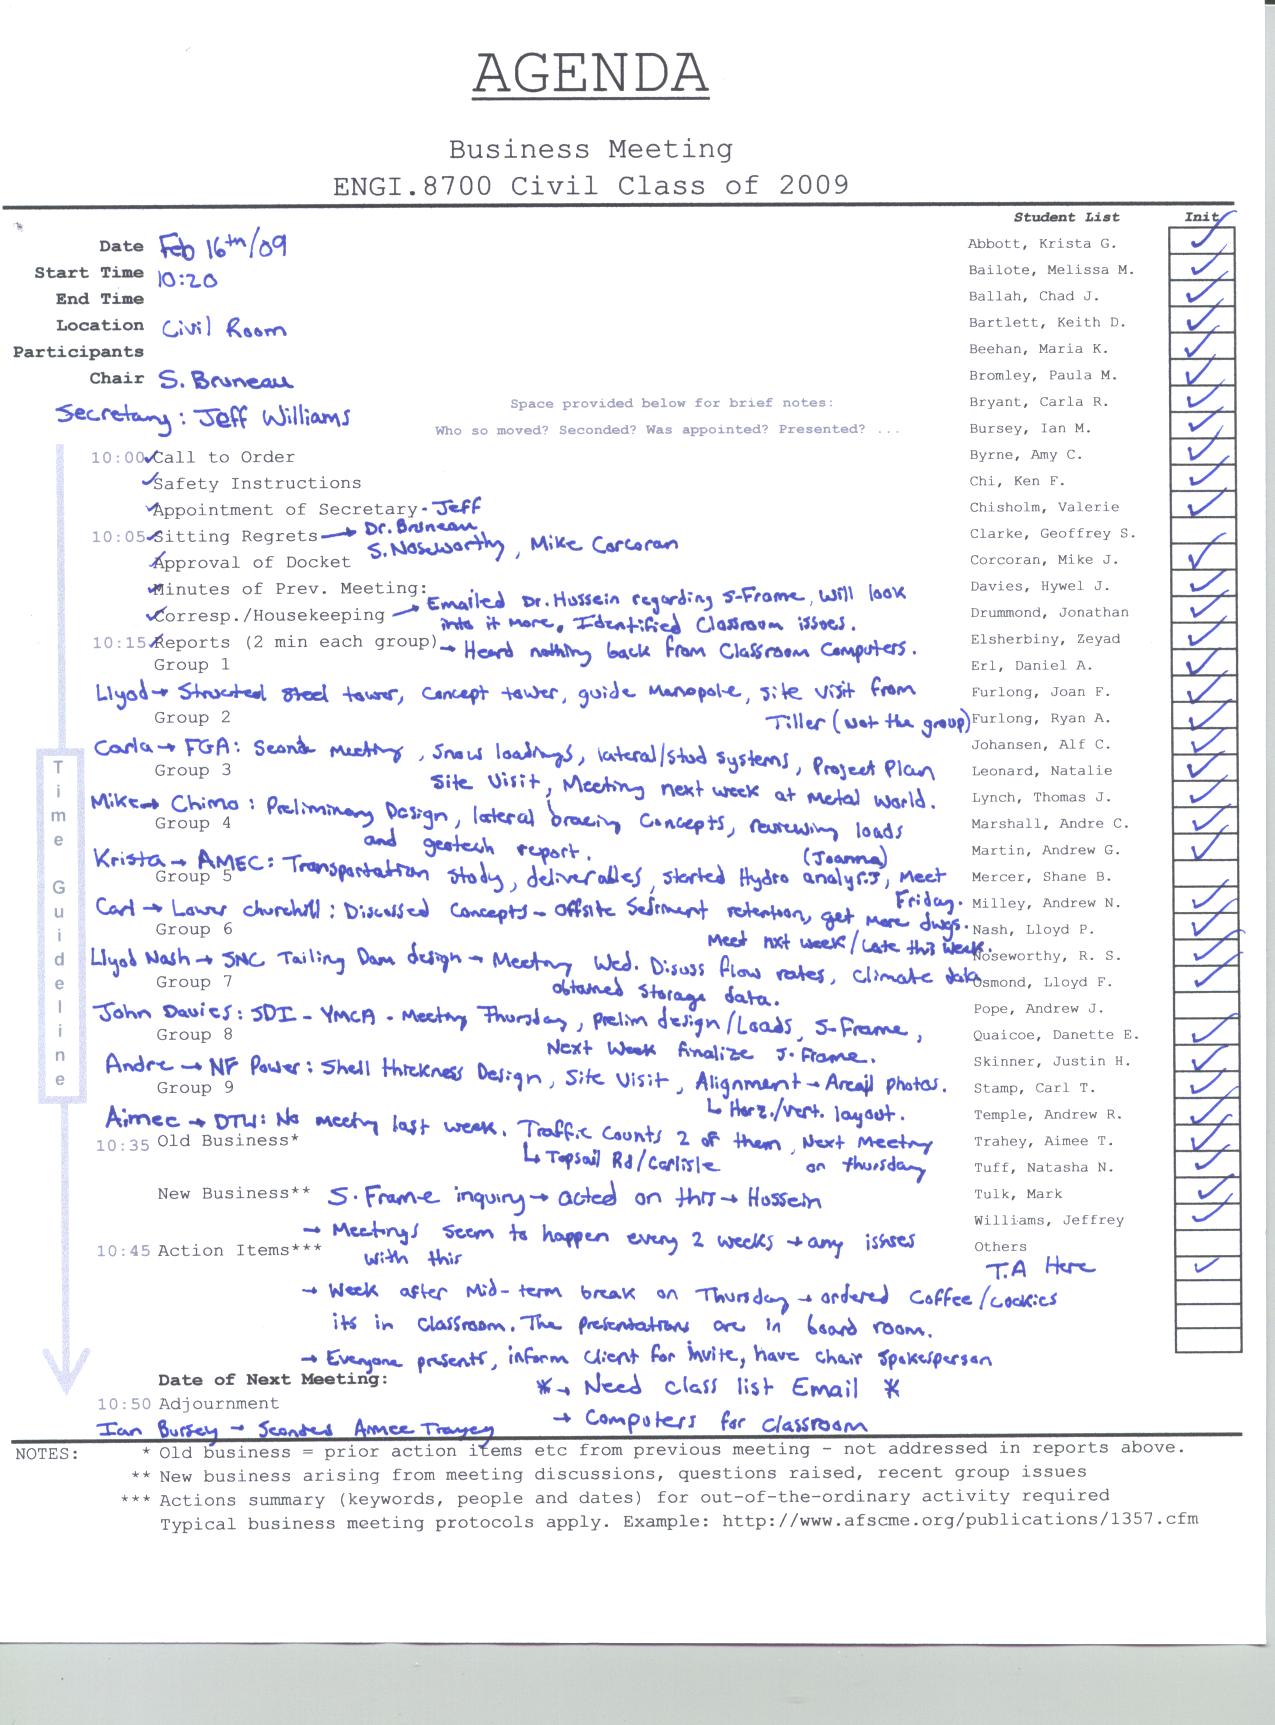 AGENDA
Business Meeting
ENGI.8700 Civil Class of 2009
Student List Init
Date Feb 16th/09
Start Time 10:20
End Time
Location Civil Room
Participants
Chair S. Bruneau
Secretary: Jeff Williams
Space provided below for brief notes:
Who so moved? Seconded? Was appointed? Presented? ...
10:00 Call to Order
Safety Instructions
Appointment of Secretary - Jeff
10:05 Sitting Regrets → Dr. Bruneau
S. Noseworthy, Mike Corcoran
Approval of Docket
Minutes of Prev. Meeting:
Corresp./Housekeeping → Emailed Dr. Hussein regarding S-Frame, will look
into it more, Identified Classroom issues.
10:15 Reports (2 min each group) → Heard nothing back from Classroom Computers.
Group 1
Llyod → Structed steel tower, concept tower, guide Monopole, site visit from
Tiller (not the group)
Group 2
Carla → FGA: Second meeting, snow loadings, lateral/stud systems, Project Plan
Site Visit, Meeting next week at Metal World.
Group 3
Mike → Chimo: Preliminary Design, lateral bracing concepts, reviewing loads
and geotech report.
Group 4
Krista → AMEC: Transportation study, deliverables, started Hydro analysis, Meet
(Joanna)
Friday.
Group 5
Carl → Lower churchill: Discussed Concepts - offsite Sediment retention, get more dwgs.
Meet nxt week/late this week.
Group 6
Llyod Nash → SNC Tailing Dam design → Meeting Wed. Disuss flow rates, climate data
obtained storage data.
Group 7
John Davies: SDI - YMCA - Meeting Thursday, prelim design/Loads, S-Frame,
Next Week finalize S-Frame.
Group 8
Andre → NF Power: Shell thickness Design, Site Visit, Alignment → Areail photos.
↳ Horz./vert. layout.
Group 9
Aimee → DTW: No meeting last week. Traffic Counts 2 of them, Next Meeting
↳ Topsail Rd/Carlisle on thursday
10:35 Old Business*
New Business** S-Frame inquiry → acted on this → Hossein
→ Meetings seem to happen every 2 weeks → any issues
with this
10:45 Action Items***
→ Week after Mid-term break on Thursday → ordered Coffee/Cookies
its in classroom. The presentations are in board room.
→ Everyone presents, inform client for invite, have chair spokesperson
Date of Next Meeting:
*→ Need class list Email *
10:50 Adjournment
→ Computers for classroom
Ian Bursey → Sconded Aimee Trayey
Time Guideline
Abbott, Krista G. ✓
Bailote, Melissa M. ✓
Ballah, Chad J. ✓
Bartlett, Keith D. ✓
Beehan, Maria K. ✓
Bromley, Paula M. ✓
Bryant, Carla R. ✓
Bursey, Ian M. ✓
Byrne, Amy C. ✓
Chi, Ken F. ✓
Chisholm, Valerie ✓
Clarke, Geoffrey S.
Corcoran, Mike J. ✓
Davies, Hywel J. ✓
Drummond, Jonathan ✓
Elsherbiny, Zeyad ✓
Erl, Daniel A. ✓
Furlong, Joan F. ✓
Furlong, Ryan A. ✓
Johansen, Alf C. ✓
Leonard, Natalie ✓
Lynch, Thomas J. ✓
Marshall, Andre C. ✓
Martin, Andrew G. ✓
Mercer, Shane B.
Milley, Andrew N. ✓
Nash, Lloyd P. ✓
Noseworthy, R. S. ✓
Osmond, Lloyd F. ✓
Pope, Andrew J.
Quaicoe, Danette E. ✓
Skinner, Justin H. ✓
Stamp, Carl T. ✓
Temple, Andrew R. ✓
Trahey, Aimee T. ✓
Tuff, Natasha N. ✓
Tulk, Mark ✓
Williams, Jeffrey ✓
Others
T.A Here ✓
NOTES: * Old business = prior action items etc from previous meeting - not addressed in reports above.
** New business arising from meeting discussions, questions raised, recent group issues
*** Actions summary (keywords, people and dates) for out-of-the-ordinary activity required
Typical business meeting protocols apply. Example: http://www.afscme.org/publications/1357.cfm